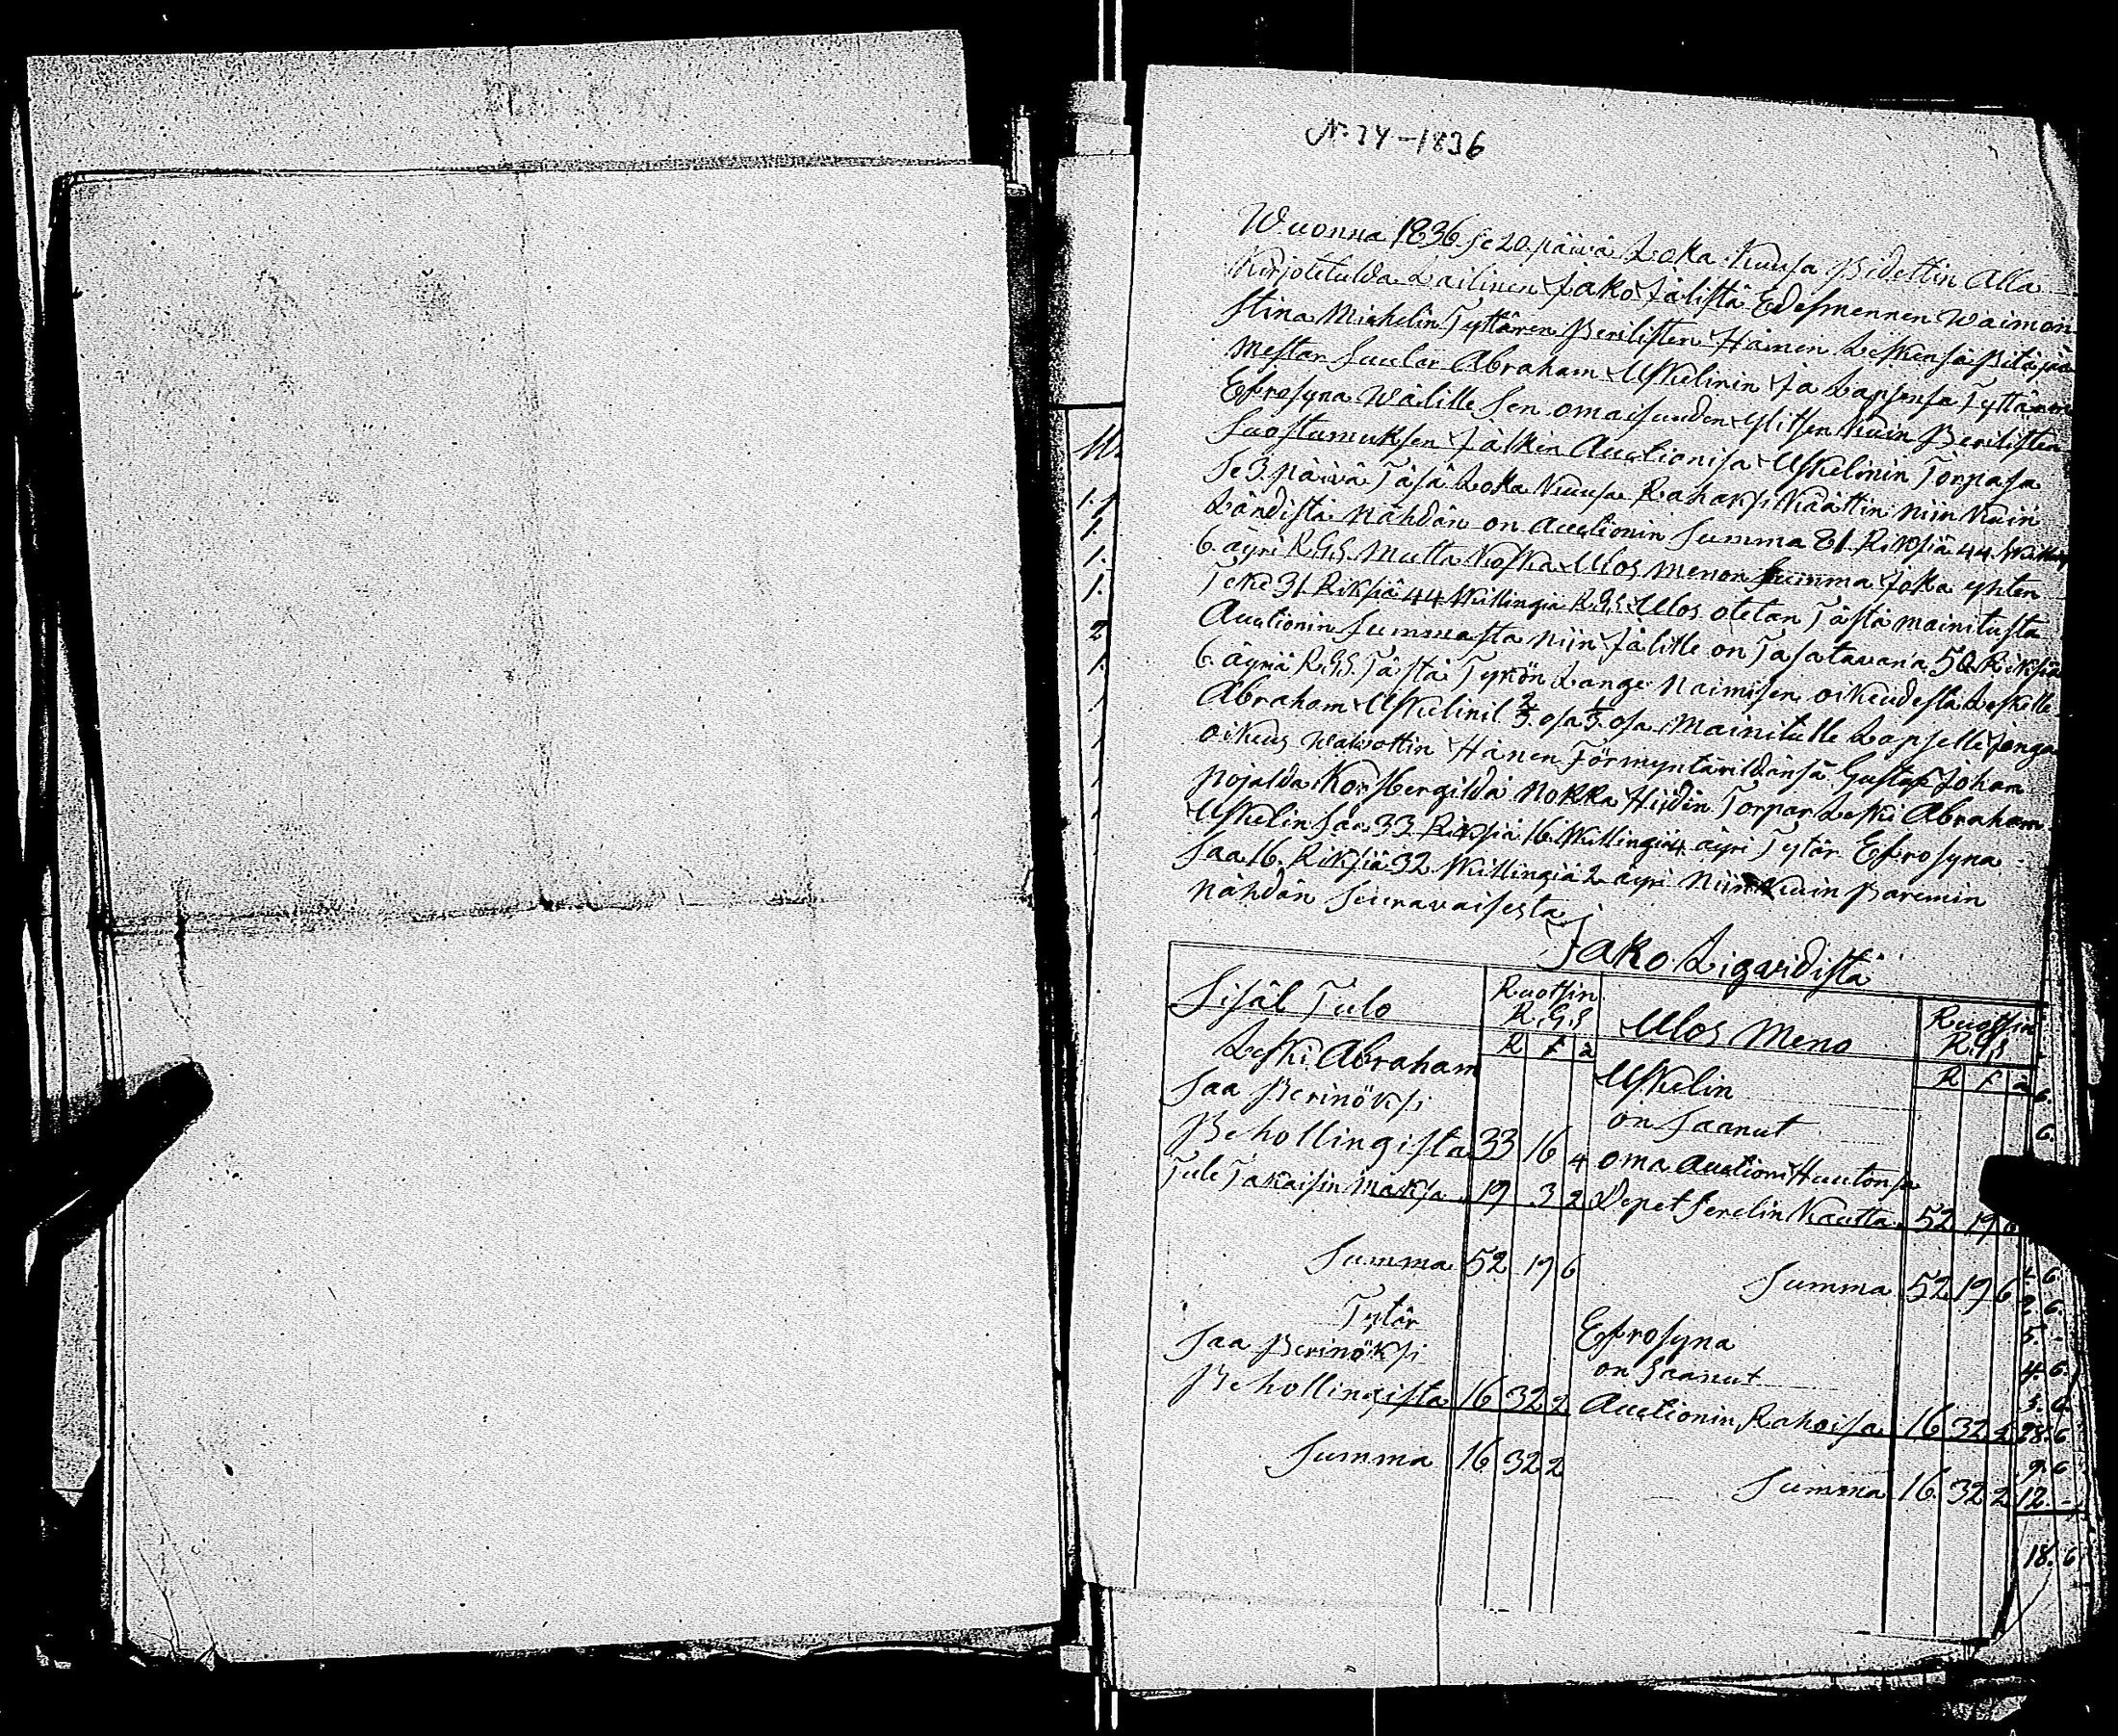 N: 74 – 1836
Wuonna 1836 se 20 päivä Loka kuusa Pidettin Alla
Kirjotetulda Lailinen Jako Jälistä Edesmennen Waimon
Stina Michelin Tyttären Perilisten Hänen Leskensä Pitäjän
Mestar Suutar Abraham Uskelinin Ja Lapsensa Tyttären
Efrosyna Wälille Sen omaisuuden ylitsen kuin Perilisten
Suostumuksen Jälkin Auctionisa Uskelinin Torpasa
Se 3 päivä Täsä Loka kuusa Rahaksi käättin niin kuin
Ländistä nähdän on auctionin Summa 81 Riksiä 44 killingi
6 äyri R.G.S. Mutta koska Ulos menon Summa Joka yhten
Teke 31 Riksiä 44 killingiä R.G.S. Ulos otetan Tästä mainitusta
Auctionin Summasta niin Jälille on Tasattavana 50 Riksiä
6 äyriä R.G.S. Tästä Tykön Lange Naimisen oikeudesta Leskelle
Abraham Uskelinil 2/3 osa 1/3 osa Mainitulle Lapselle Jonga
oikeus walvottin Hänen Förmyntärildänsä Gustaf Johan
Pojalda Korsbergilda Nokka Hijdin Torpar Leski Abraham
Uskelin Saa 33 Riksiä 16 killingiä 4 äyri Tytär Efrosyna
Saa 16 Riksiä 32 killingiä 2 äyri Niin kuin Paremin
Nähdän Seuravaisesta
Jako Ligaridista
Sisäl Tulo Ruotsin R.G.S Ulos Meno Ruotsin R.G.S
R f ä R f ä
Leski Abraham Uskelin
Saa Perinöksi on Saanut
Behollingista 33 16 4 oma Auction Huutonsa
Tule Takaisin Maksa 19 3 2 Depet Serelin Kautta 52 19 6
Summa 52 19 6 Summa 52 19 6
Tytär Efrosyna
Saa Perinöksi on Saanut
Behollingista 16 32 2 Auctionin Rahoisa 16 32 2
Summa 16 32 2 Summa 16 32 2
6.
6.
4. 6.
2. 6.
5. –
4. 6.
28. 6
9. 6
12. –
18. 6